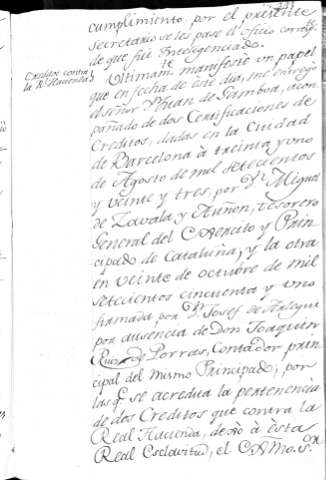 cumplimiento, por el presente
Secretario se les pase el Oficio corresp.te
de que fui Inteligenciado.
Creditos contra
la Rl. Hacienda
Ultimam.te manifesté un papel
que en fecha de este dia, me entregó
el señor Dn. Juan de Gamboa, acom
pañado de dos Certificaciones de
Creditos, dadas en la Ciudad
de Barcelona à treinta y uno
de Agosto de mil setecientos
y veinte y tres, por Dn. Miguel
de Zavala, y Auñon, tesorero
General del Exercito y Prin
cipado de Cataluña, y la otra
en veinte de octubre de mil
setecientos cincuenta y uno
firmada por Dn. Josef de
por ausencia de Don Joaquin
Ruiz de Porras, Contador prin
cipal del mismo Principado; por
las q.e se acredita la pertenencia
de dos Creditos que contra la
Real Hacienda, dexó à esta
Real Esclavitud, el Exmo. S.or